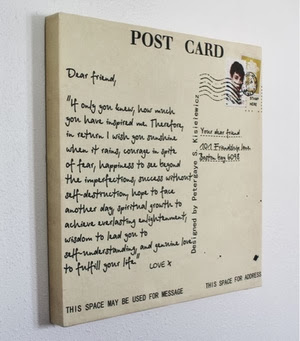 POST CARD
Dear friend,
"If only you knew, how much
you have inspired me. Therefore,
in return I wish you sunshine
when it rains, courage in spite
of fear, happiness to see beyond
the imperfections, success without
self-destruction, hope to face
another day, spiritual growth to
achieve everlasting enlightenment,
wisdom to lead you to
self-understanding, and genuine love
to fulfill your life."
LOVE x
Designed by Petergove S. Kisielewicz
Your dear friend
Friendship
THIS SPACE MAY BE USED FOR MESSAGE
THIS SPACE FOR ADDRESS